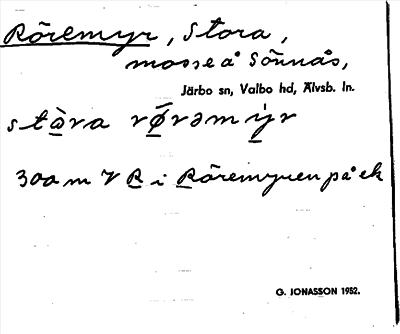 Röremyr, Stora,
mosse å Sönnås,
Järbo sn, Valbo hd, Älvsb. ln.
stòra rø̄rəmỳr
300 m V R i Röremyren på ek
G. JONASSON 1952.